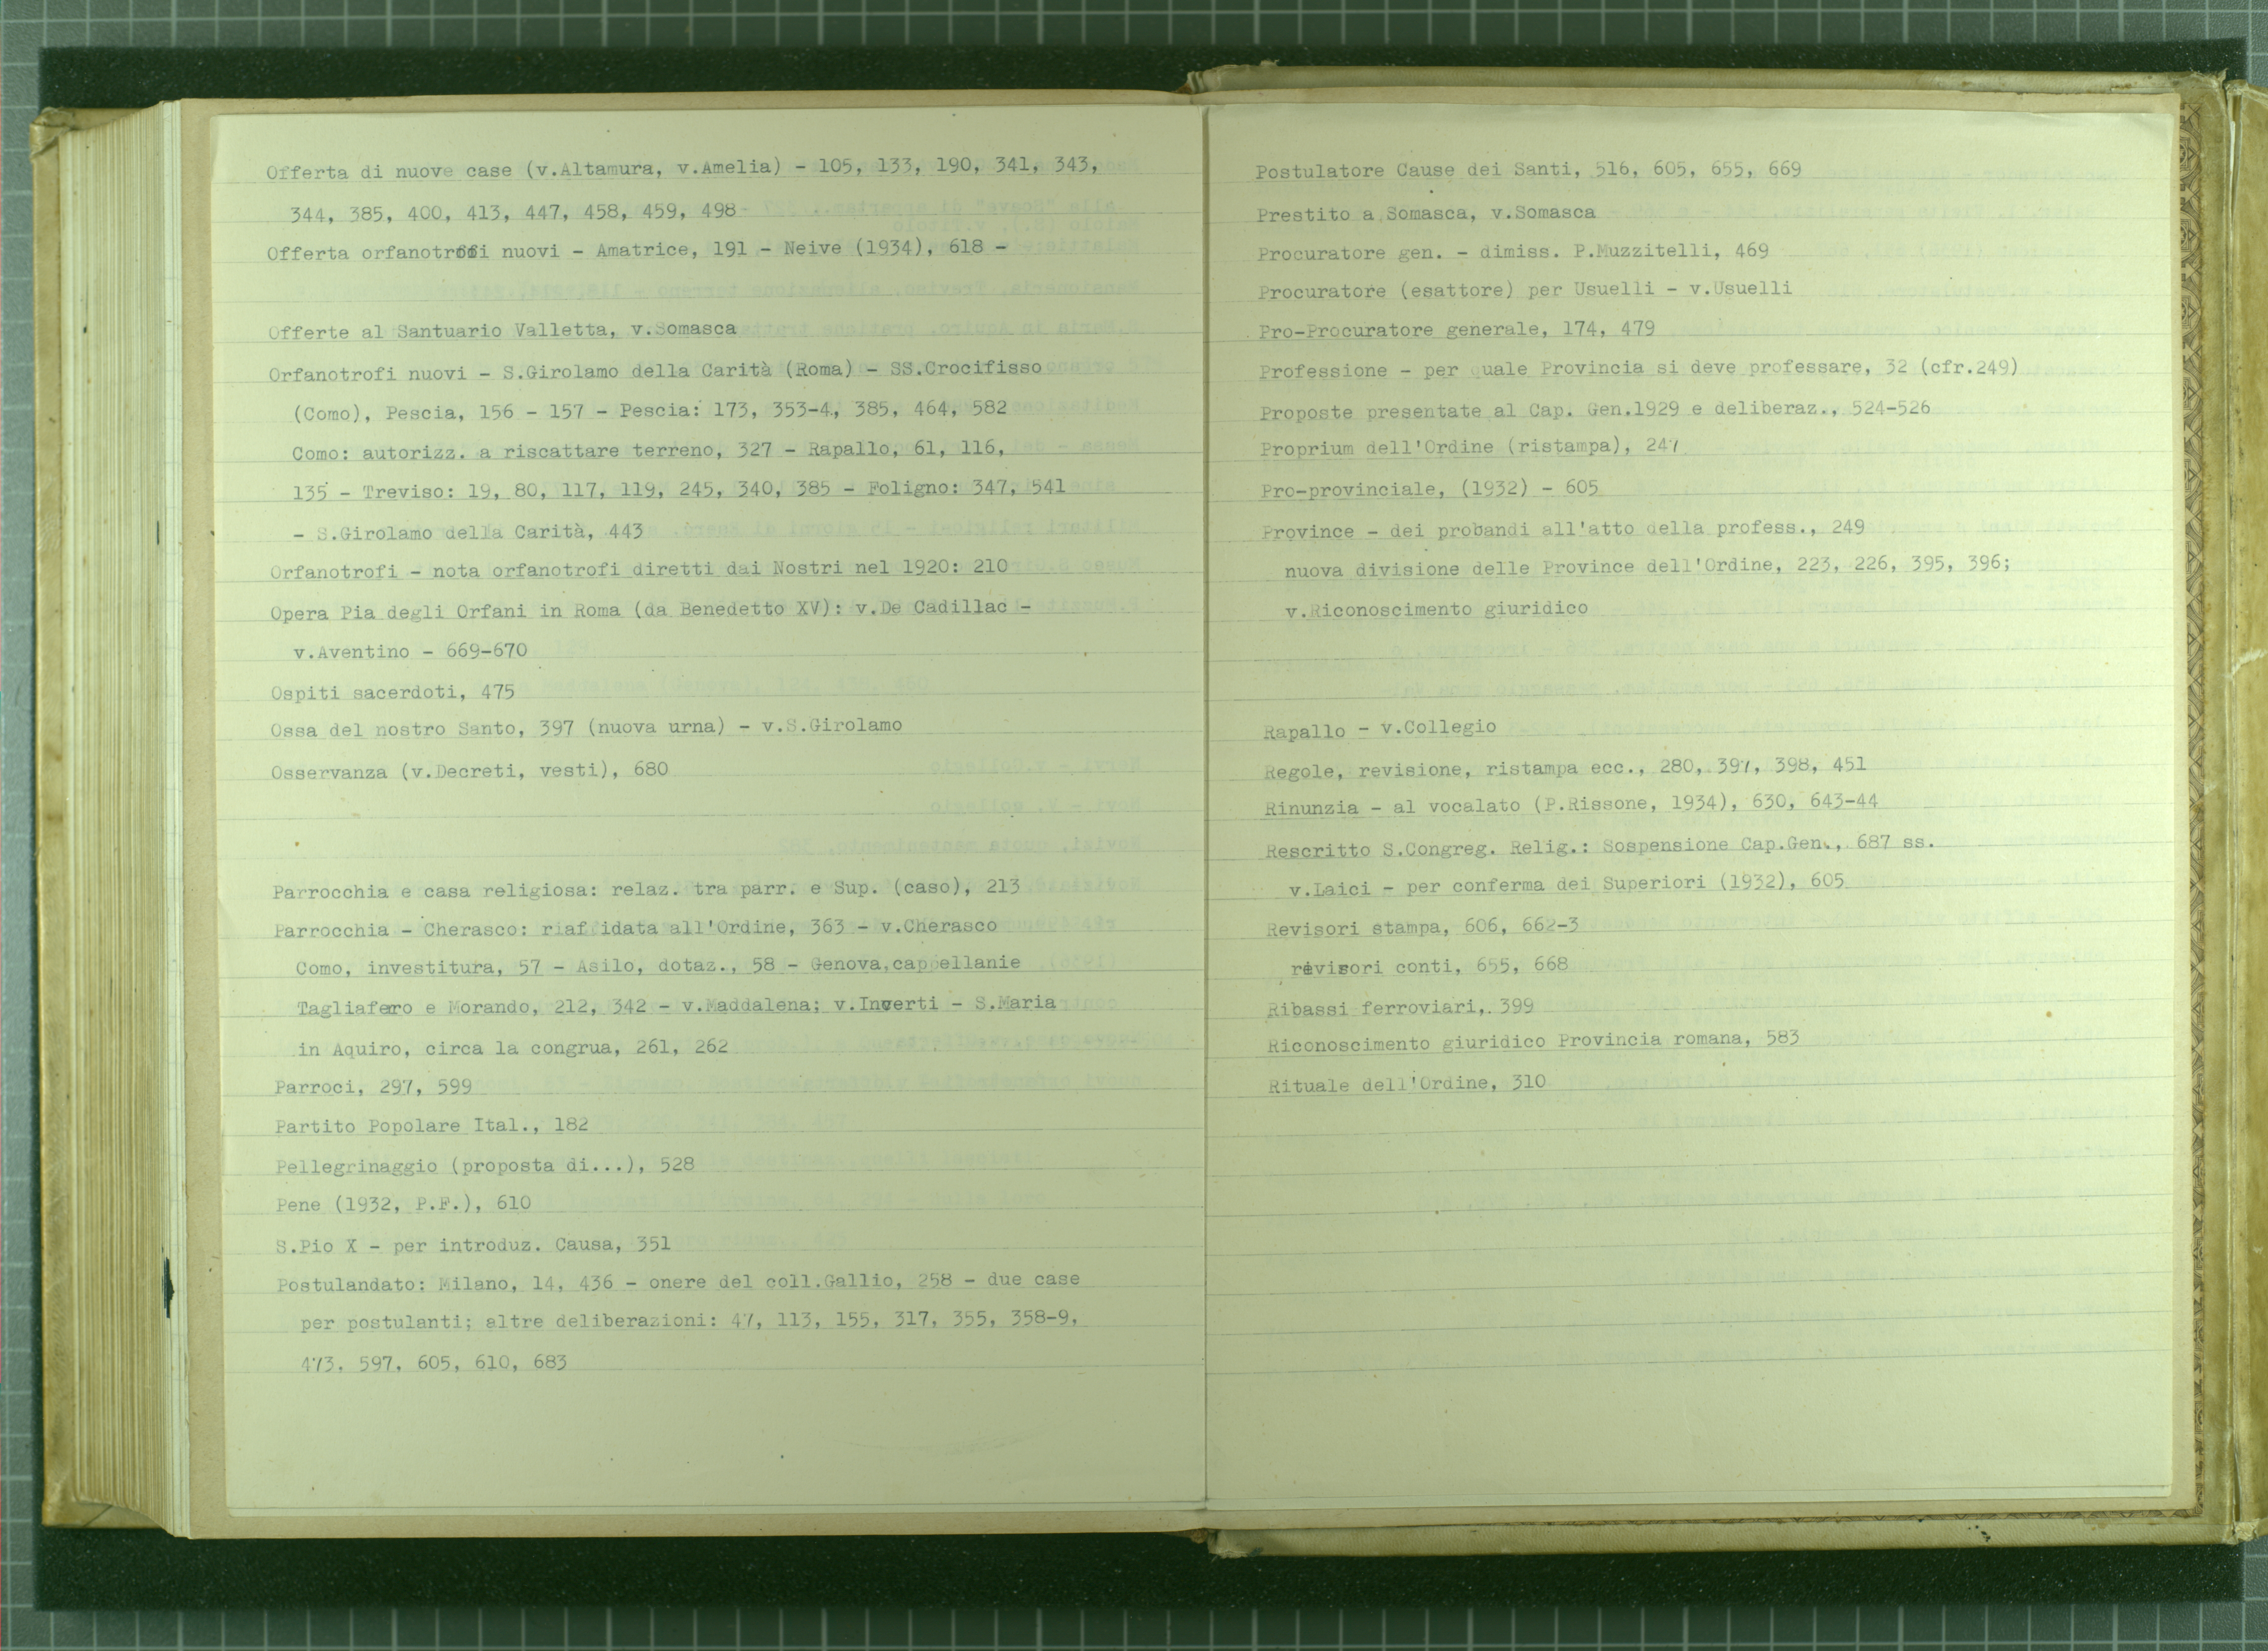 Offerta di nuove case (v.Altamura, v.Amelia) - 105, 133, 190, 341, 343,
344, 385, 400, 413, 447, 458, 459, 498
Offerta orfanotrofi nuovi - Amatrice, 191 - Neive (1934), 618 -
Offerte al Santuario Valletta, v.Somasca
Orfanotrofi nuovi - S.Girolamo della Carità (Roma) - SS.Crocifisso
(Como), Pescia, 156 - 157 - Pescia: 173, 353-4, 385, 464, 582
Como: autorizz. a riscattare terreno, 327 - Rapallo, 61, 116,
135 - Treviso: 19, 80, 117, 119, 245, 340, 385 - Foligno: 347, 541
- S.Girolamo della Carità, 443
Orfanotrofi - nota orfanotrofi diretti dai Nostri nel 1920: 210
Opera Pia degli Orfani in Roma (da Benedetto XV): v.De Cadillac -
v.Aventino - 669-670
Ospiti sacerdoti, 475
Ossa del nostro Santo, 397 (nuova urna) - v.S.Girolamo
Osservanza (v.Decreti, vesti), 680
Parrocchia e casa religiosa: relaz. tra parr. e Sup. (caso), 213
Parrocchia - Cherasco: riaffidata all'Ordine, 363 - v.Cherasco
Como, investitura, 57 - Asilo, dotaz., 58 - Genova,cappellanie
Tagliaferro e Morando, 212, 342 - v.Maddalena; v.Inverti - S.Maria
in Aquiro, circa la congrua, 261, 262
Parroci, 297, 599
Partito Popolare Ital., 182
Pellegrinaggio (proposta di...), 528
Pene (1932, P.F.), 610
S.Pio X - per introduz. Causa, 351
Postulandato: Milano, 14, 436 - onere del coll.Gallio, 258 - due case
per postulanti; altre deliberazioni: 47, 113, 155, 317, 355, 358-9,
473, 597, 605, 610, 683
Postulatore Cause dei Santi, 516, 605, 655, 669
Prestito a Somasca, v.Somasca
Procuratore gen. - dimiss. P.Muzzitelli, 469
Procuratore (esattore) per Usuelli - v.Usuelli
Pro-Procuratore generale, 174, 479
Professione - per quale Provincia si deve professare, 32 (cfr.249)
Proposte presentate al Cap. Gen.1929 e deliberaz., 524-526
Proprium dell'Ordine (ristampa), 247
Pro-provinciale, (1932) - 605
Province - dei probandi all'atto della profess., 249
nuova divisione delle Province dell'Ordine, 223, 226, 395, 396;
v.Riconoscimento giuridico
Rapallo - v.Collegio
Regole, revisione, ristampa ecc., 280, 397, 398, 451
Rinunzia - al vocalato (P.Rissone, 1934), 630, 643-44
Rescritto S.Congreg. Relig.: Sospensione Cap.Gen., 687 ss.
v.Laici - per conferma dei Superiori (1932), 605
Revisori stampa, 606, 662-3
revisori conti, 655, 668
Ribassi ferroviari, 399
Riconoscimento giuridico Provincia romana, 583
Rituale dell'Ordine, 310